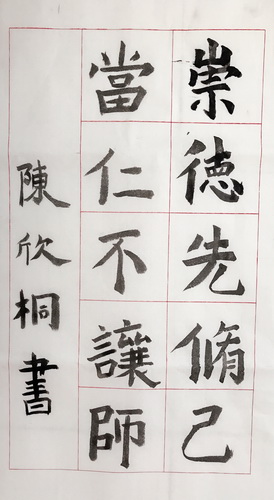 崇徳先脩己
當仁不讓師
陳欣桐書